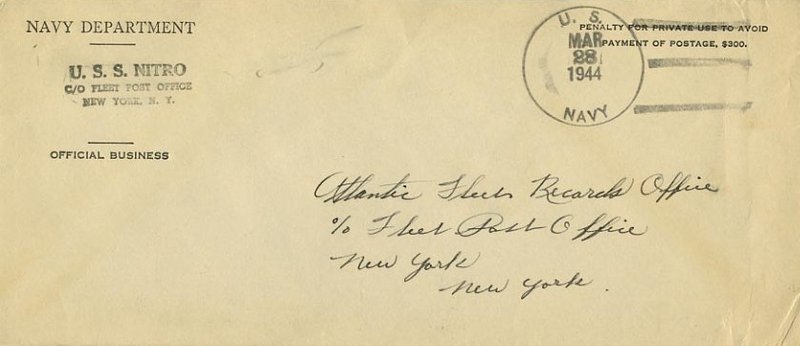 NAVY DEPARTMENT
U. S. S. NITRO
C/O FLEET POST OFFICE
NEW YORK, N. Y.
OFFICIAL BUSINESS
U. S.
MAR
28
1944
NAVY
PENALTY FOR PRIVATE USE TO AVOID
PAYMENT OF POSTAGE, $300.
Atlantic Fleet Records Office
% Fleet Post Office
New York
New York.